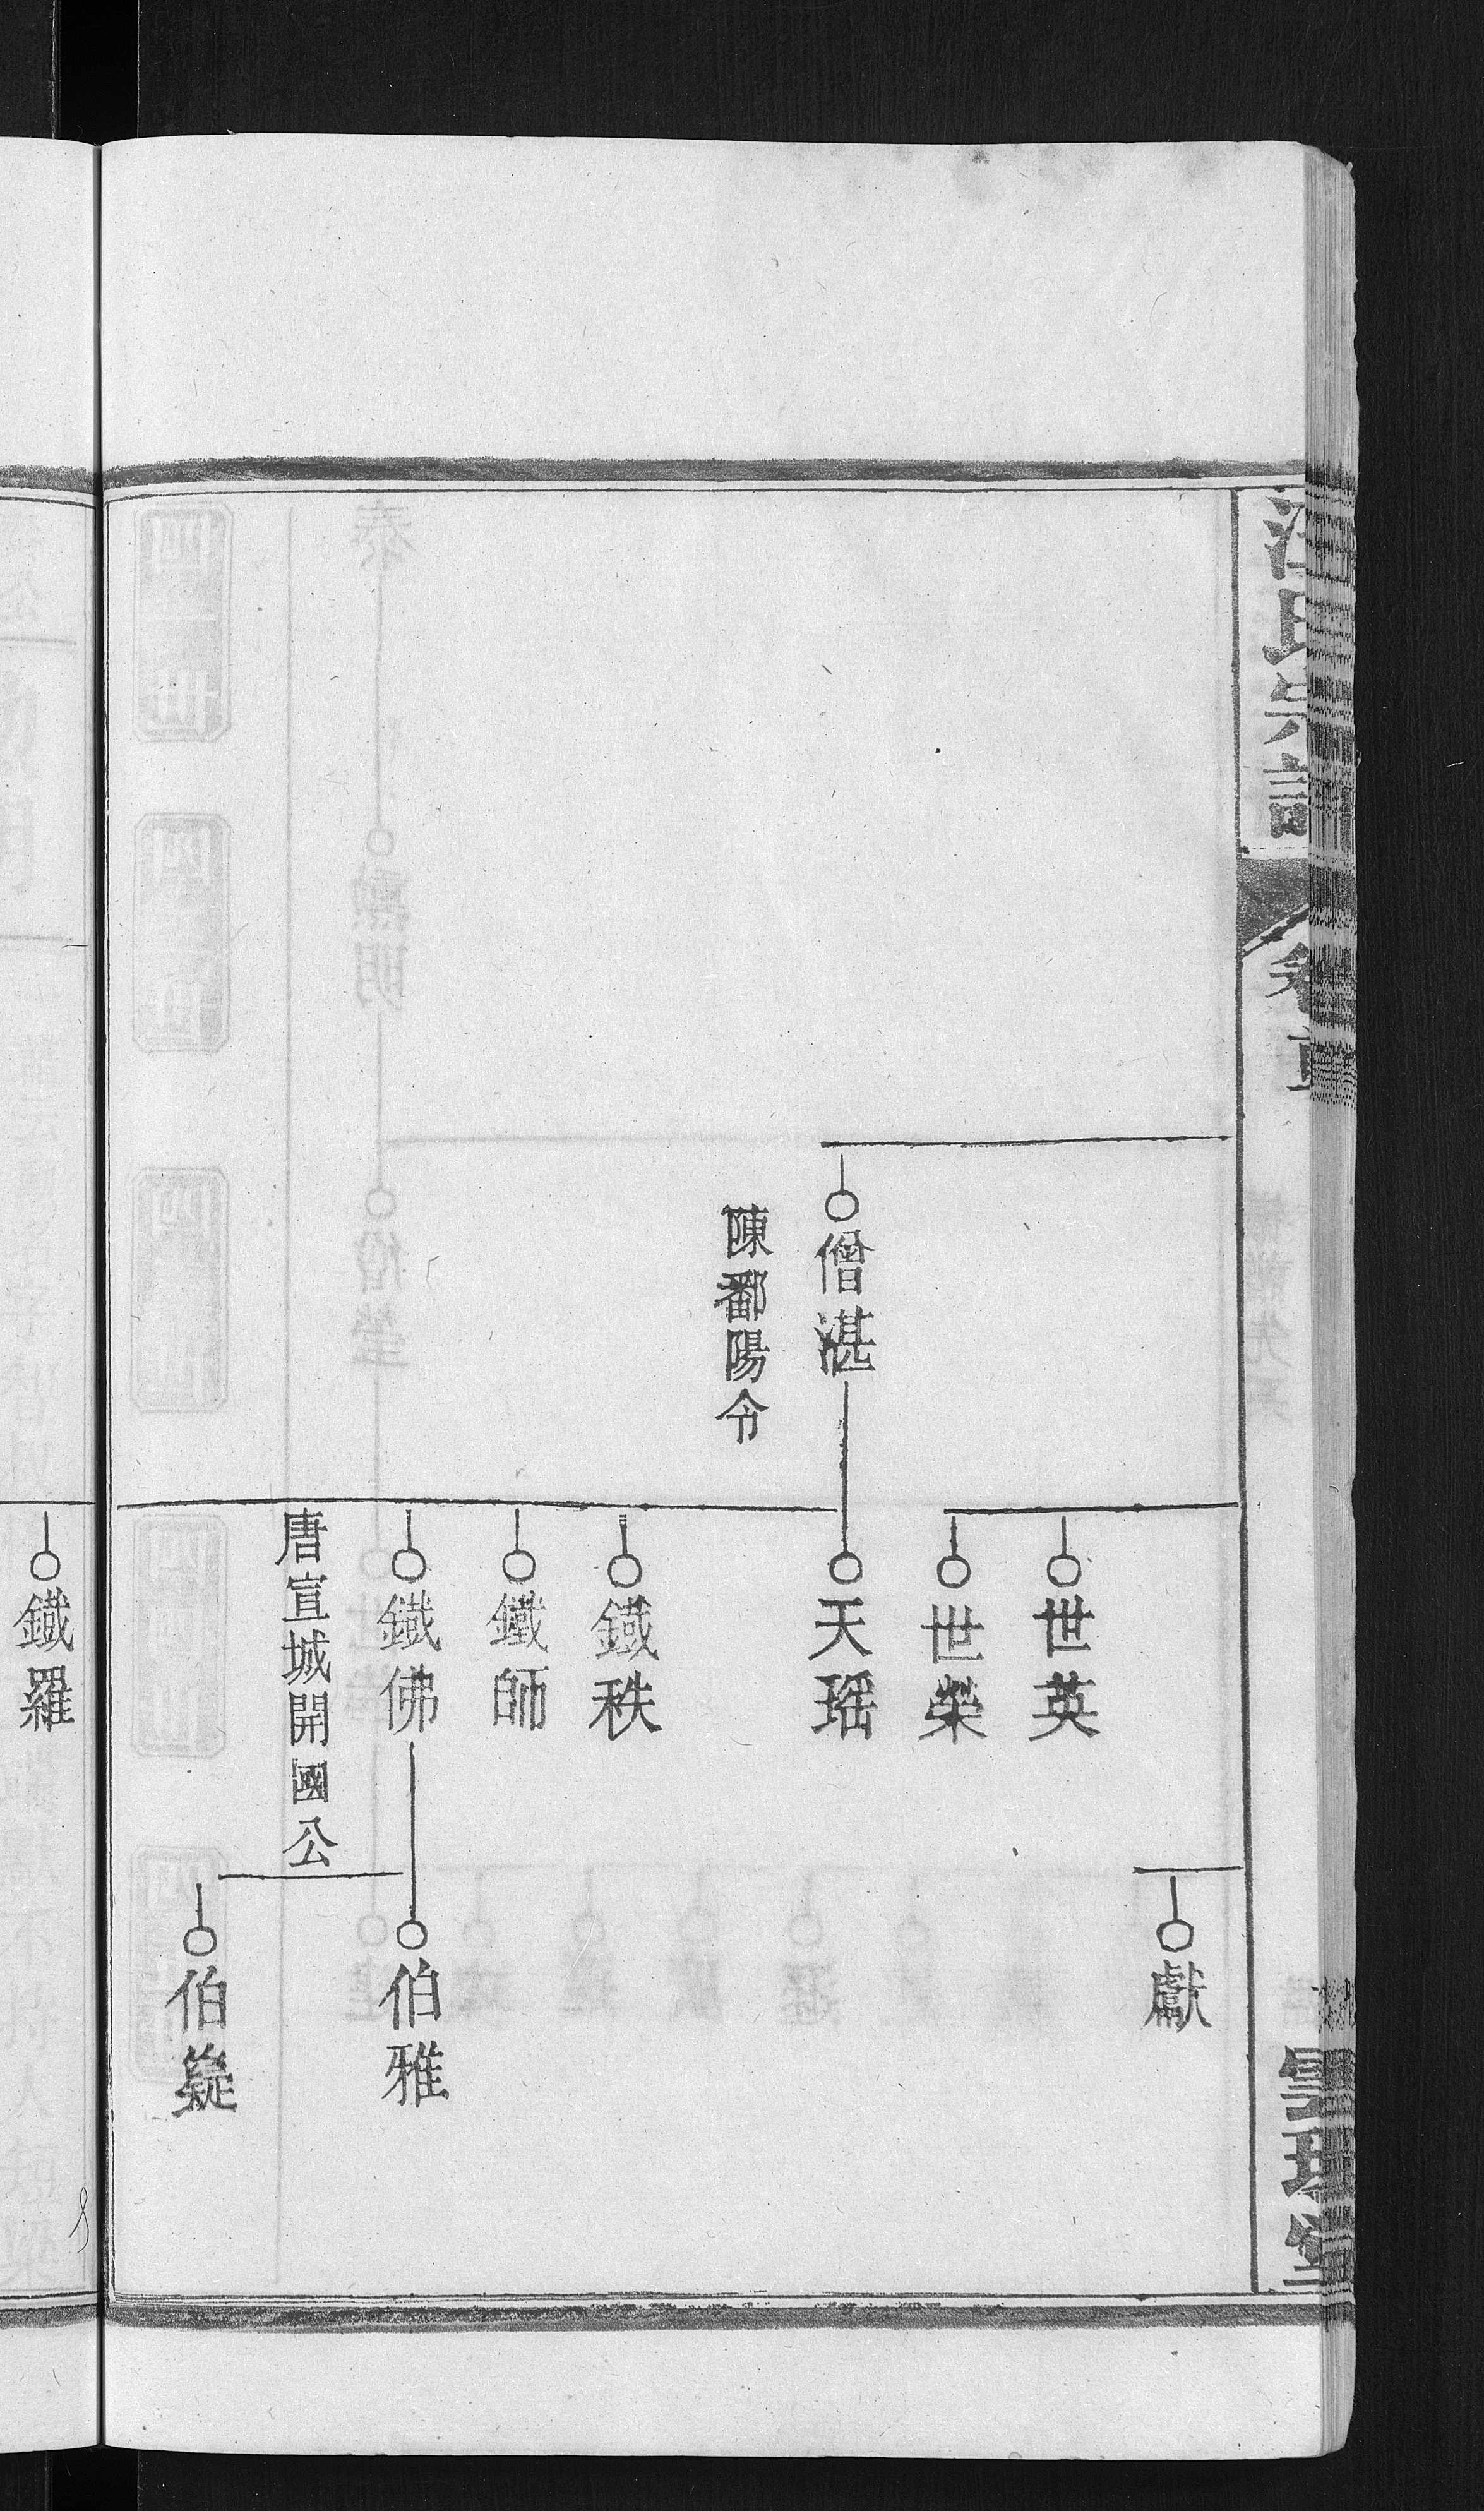 汪氏宗譜
卷首
僧湛
陳鄱陽令
獻
世英
世榮
天瑶
鐡秩
鐡師
鐡佛
唐宣城開國公
伯雅
伯嶷
鐡羅